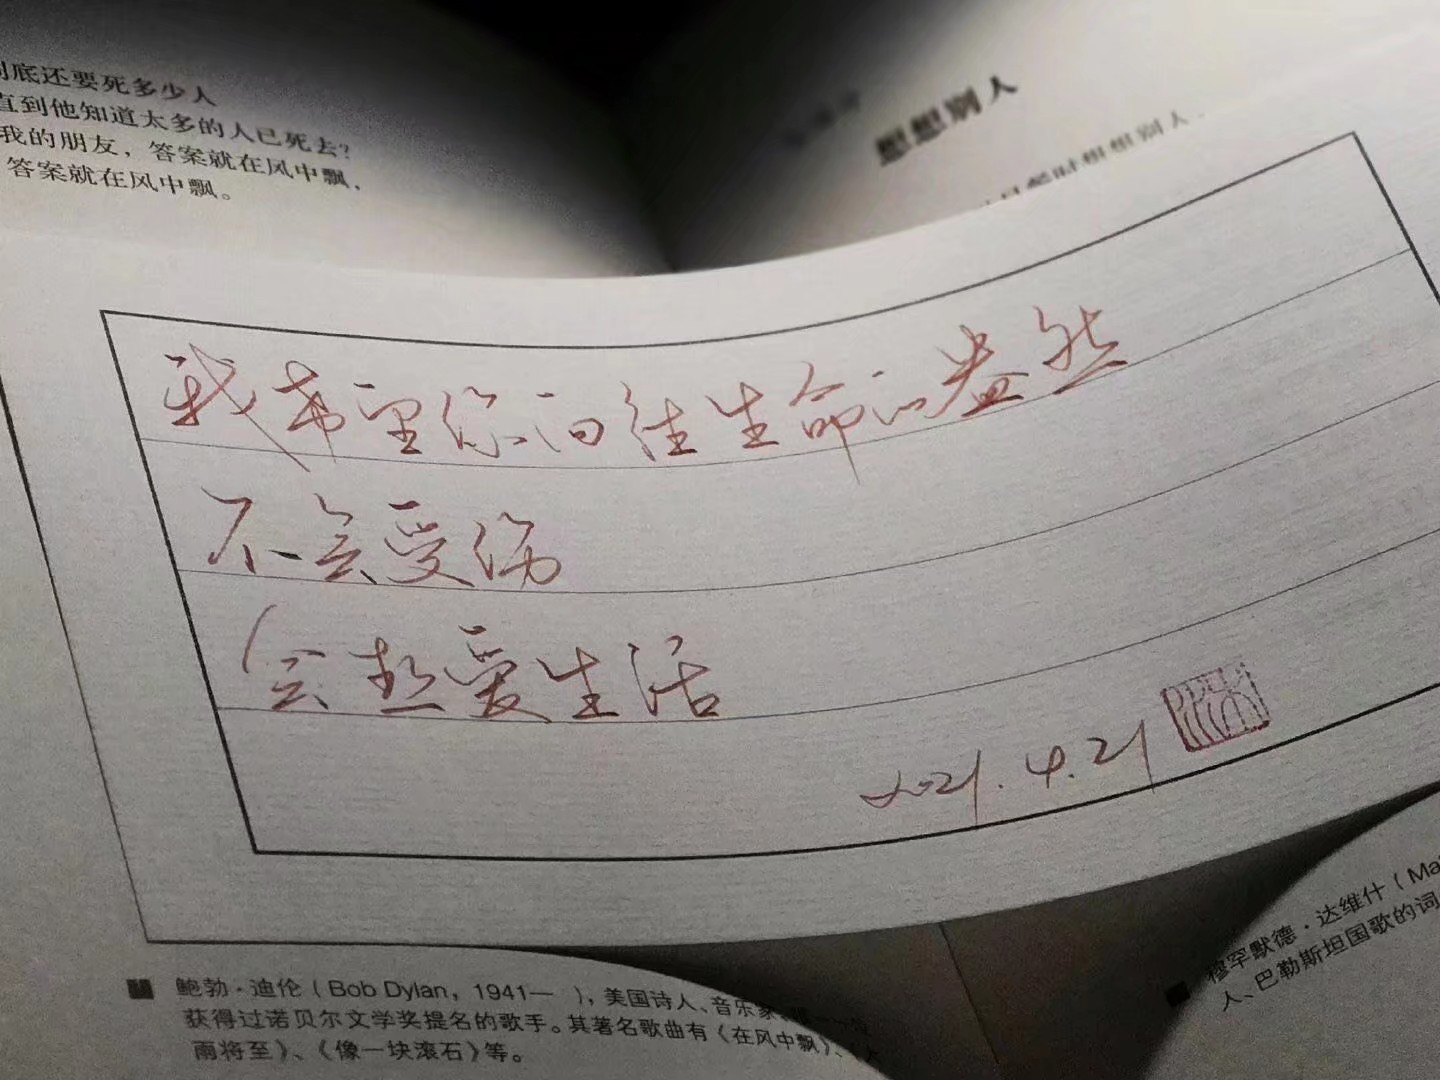 到底还要死多少人
直到他知道太多的人已死去？
我的朋友，答案就在风中飘，
答案就在风中飘。
想想别人
时想想别人，
我希望你向往生命的盎然
不会受伤
会热爱生活
2021.4.21
鲍勃·迪伦（Bob Dylan，1941— ），美国诗人、音乐家，
获得过诺贝尔文学奖提名的歌手。其著名歌曲有《在风中飘》、
雨将至》、《像一块滚石》等。
穆罕默德·达维什（Ma
人、巴勒斯坦国歌的词